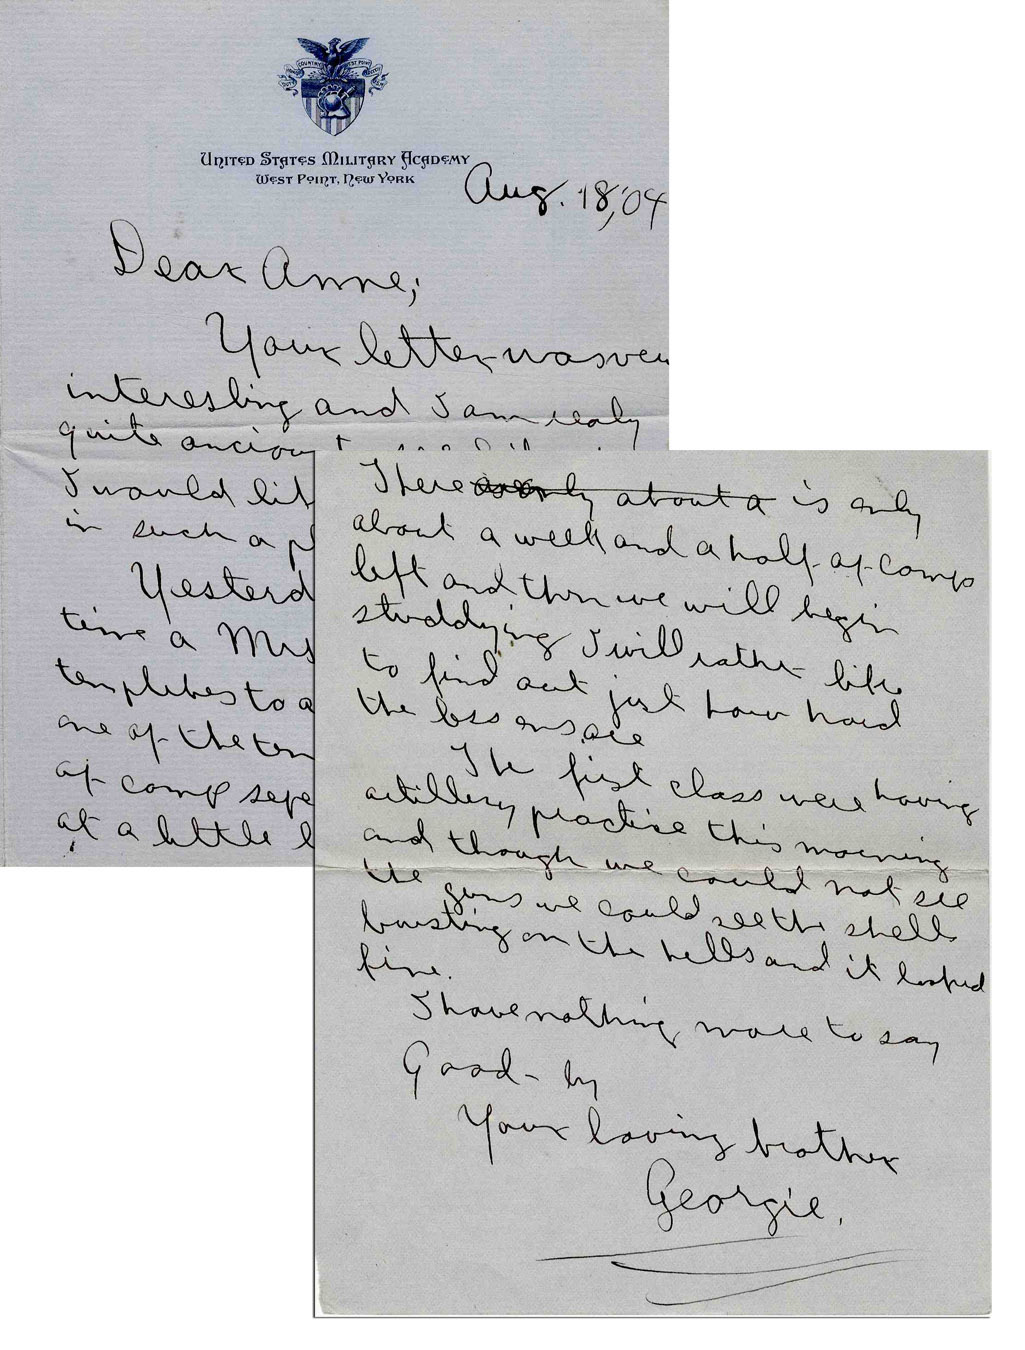 UNITED STATES MILITARY ACADEMY
WEST POINT, NEW YORK
Aug. 18, '04
Dear Anne;
Your letter was ver
interesting and I am realy
quite
I would
in such a
Yesterd
time a Mrs
to a
one of the ten
of camp sepe
at a little
There only about a is only
about a week and a half of camp
left and then we will begin
studdying I will rather like
to find out just how hard
the lessons are
The first class were having
artillery practise this morning
and though we could not see
the guns we could see the shells
bursting on the hills and it looked
fine.
I have nothing more to say
Good-by
Your loving brother
Georgie.